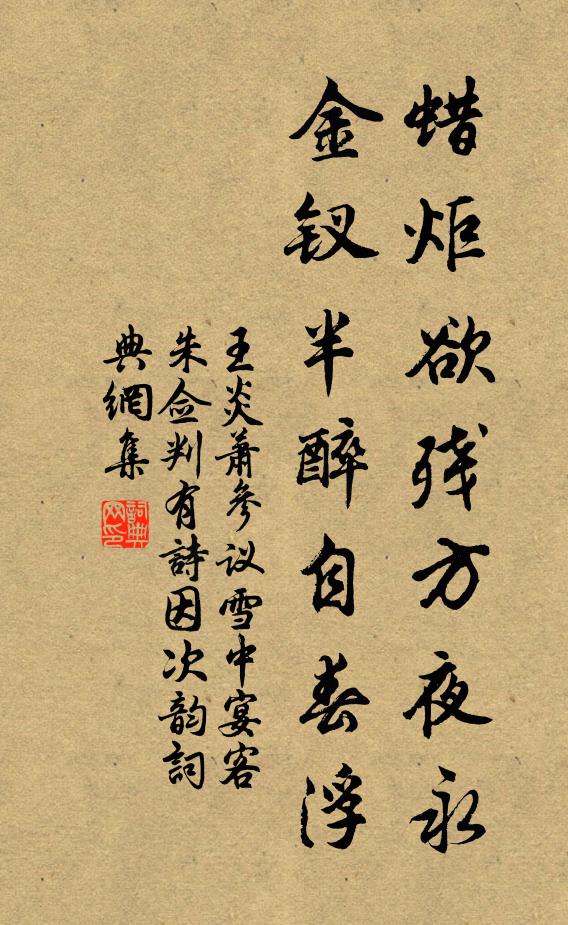 蜡炬欲残方夜永
金钗半醉自春浮
王炎萧参议雪中宴客
朱佥判有詩因次韵詞
典網集
詞典网印